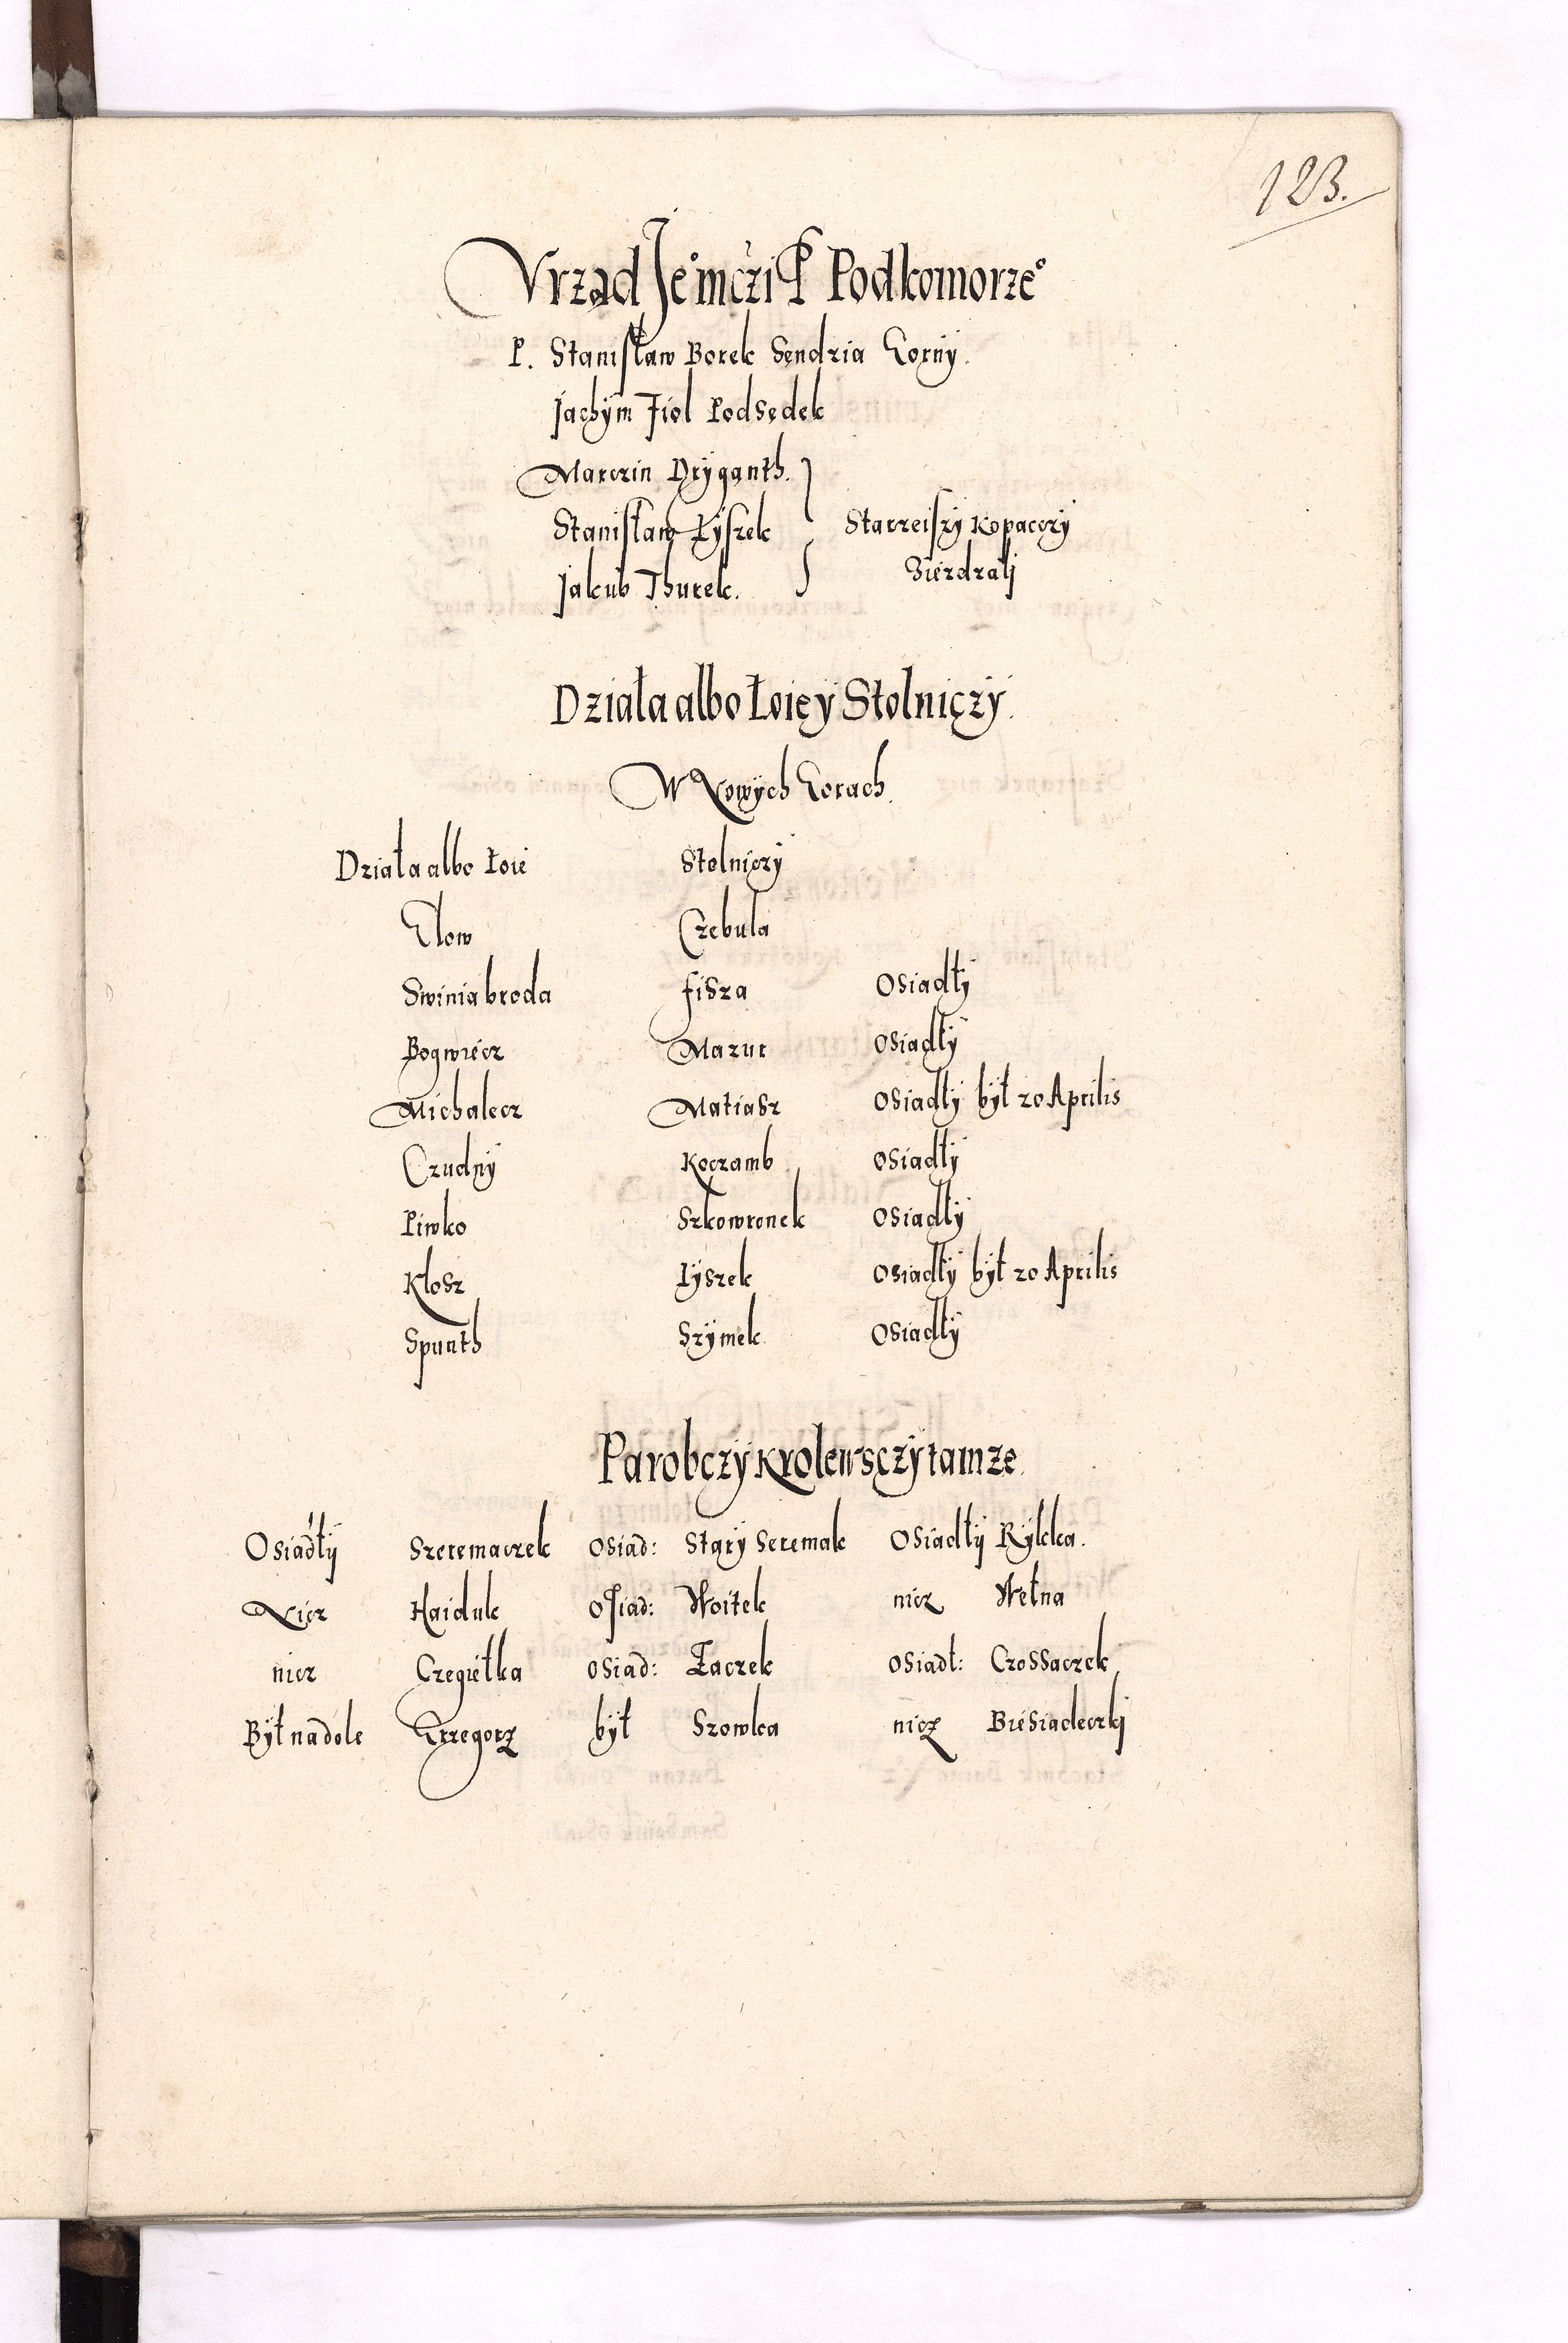 123.
Vrząd Je° mczi P Podkomorze°
P. Stanisław Borek Sendzia Gorny.
Jachym Fiol Podsedek
Marczin Dryganth.
Stanisław Łyszek
Starzeiszy Kopaczy
Jakub Thurek.
Działa albo Łoie y Stolniczy.
W Nowych Gorach.
Działa albo Łoie Stolniczy
Głow Czebula
Swinia broda fisza Osiadły
Bogwiecz Mazur Osiadły
Michalecz Matiasz Osiadły był 20 Aprilis
Czudny Koczamb Osiadły
Piwko Szkowronek Osiadły
Kłosz Łyszek Osiadły był 20 Aprilis
Spunth Szymek Osiadły
Parobczy Krolewsczy tamze.
Osiadły Szeremaczek Osiad: Stary Seremak Osiadły Rykka.
Nicz Haiduk Osiad: Woitek nicz Wełna
nicz Czegiełka Osiad: Żaczek Osiadł: Crossaczek
Był na dole Grzegorz był Szowka nicz Biesiadeczki